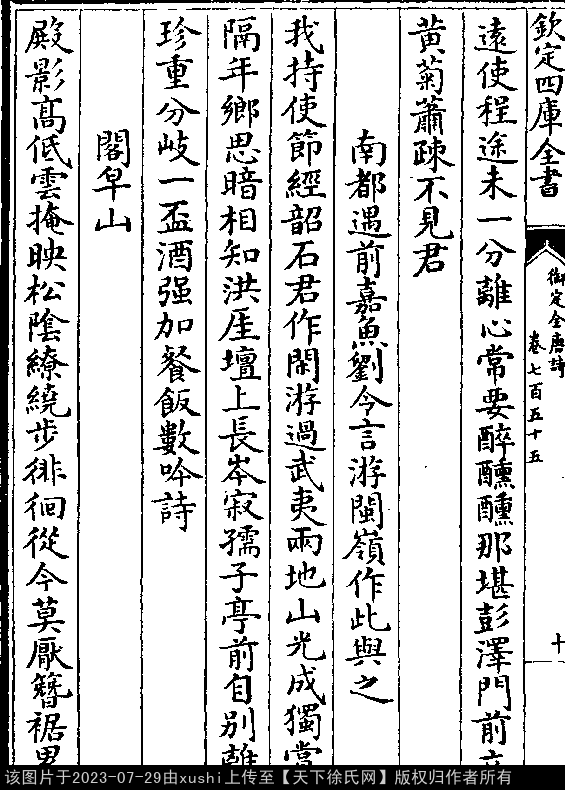 欽定四庫全書
御定全唐詩
卷七百五十五
十
遠使程途未一分離心常要醉醺醺那堪彭澤門前
黄菊蕭疎不見君
南都遇前嘉魚劉令言游閩嶺作此與之
我持使節經韶石君作閑游過武夷兩地山光成獨
隔年鄉思暗相知洪厓壇上長岑寂孺子亭前自别離
珍重分岐一盃酒强加餐飯數吟詩
閣皁山
殿影髙低雲掩映松陰繚繞步徘徊從今莫厭簪裾
该图片于2023-07-29由xushi上传至【天下徐氏网】版权归作者所有